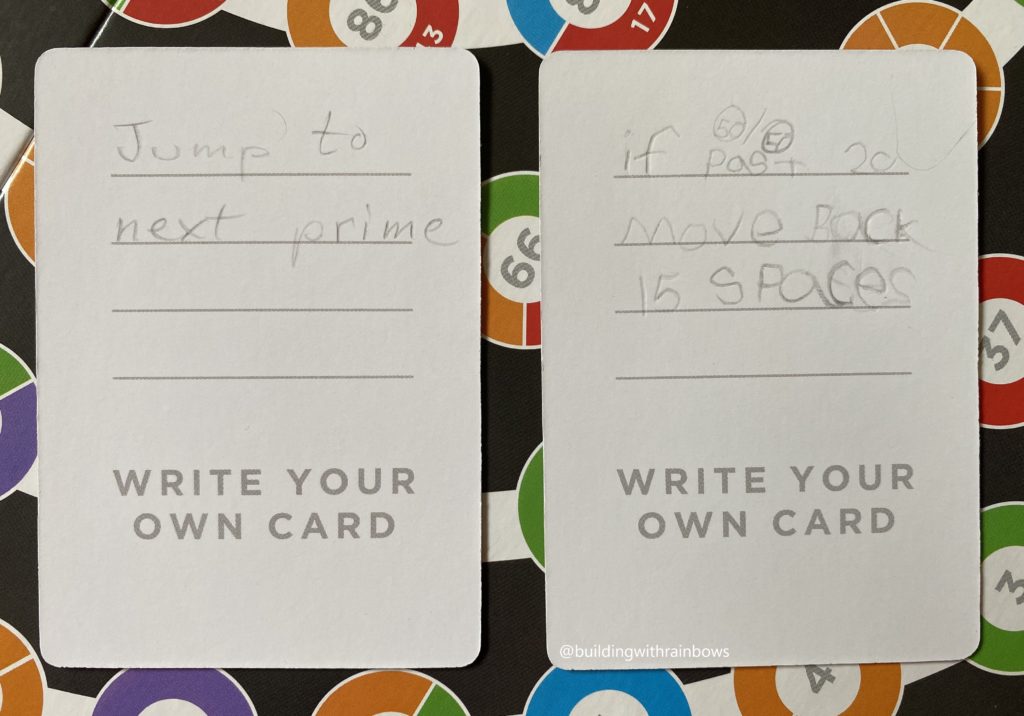 86
13
17
Jump to
next prime
WRITE YOUR
OWN CARD
66
50/50
if past 20
move Back
15 SPaces
WRITE YOUR
OWN CARD
37
3
4
@buildingwithrainbows